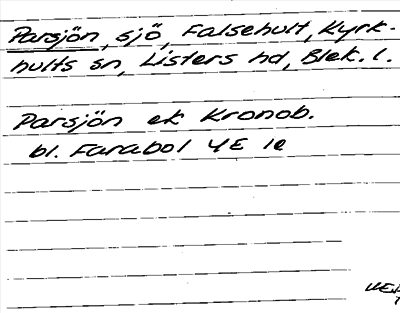 Parsjön, sjö, Falsehult, Kyrk-
hults sn, Listers hd, Blek. l.
Parsjön ek Kronob.
bl. Farabol 4E 1e